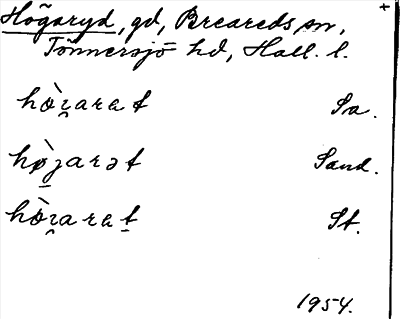 Högaryd, gd, Breareds sn, +
Tönnersjö hd, Hall. l.
hò̤ꝛarat Sa.
hø̠̀ʒarət Sand.
hò̤ꝛarat̠ St.
1954.